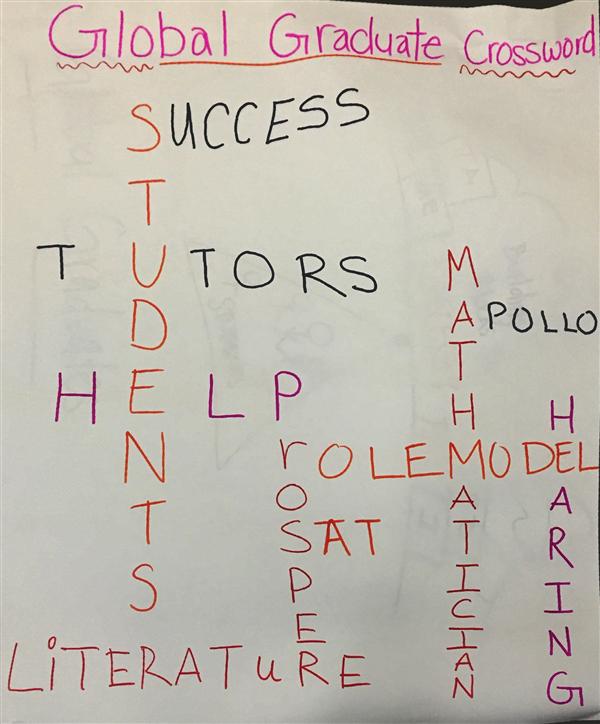 Global Graduate Crossword
SUCCESS
STUDENTS
TUTORS
MATHMATICIAN
APOLLO
HELP
PrOSPER
HEARING
rOLEMODEL
SAT
LiTERATuRE